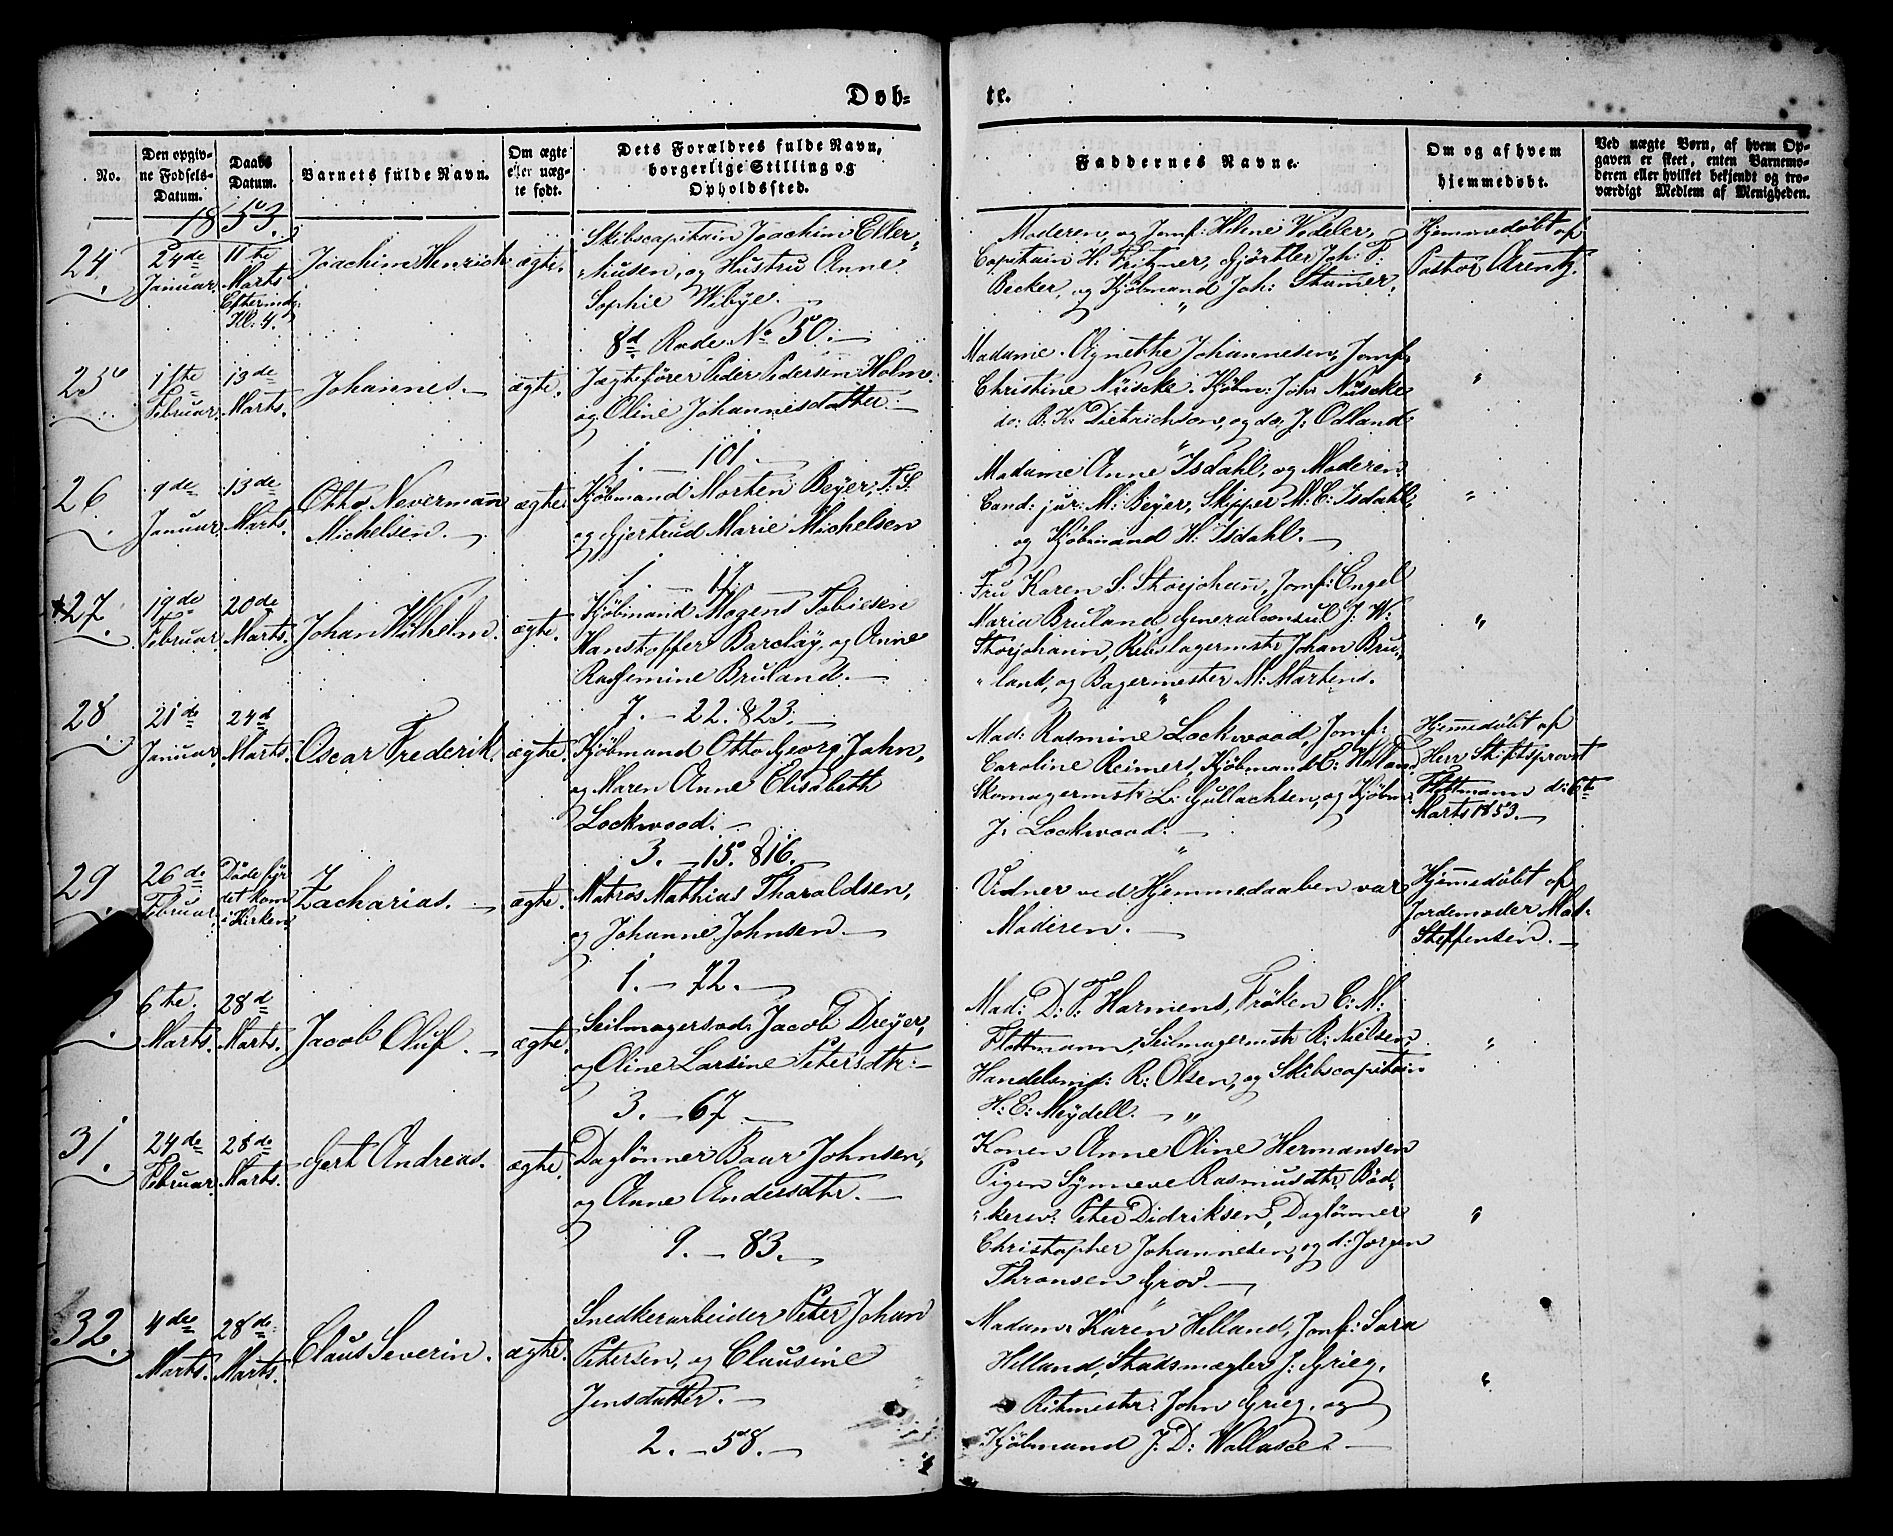 Døb-
te.
No.
Den opgiv-
ne Fødsels-
Datum.
Daabs
Datum.
Barnets fulde Navn.
Om ægte
eller uæg-
te født.
Dets Forældres fulde Navn,
borgerlige Stilling og
Opholdssted.
Faddernes Navne.
Om og af hvem
hjemmedøbt.
Ved uægte Børn, af hvem Op-
gaven er skeet, enten Barnemo-
deren eller hvilket bekjendt og tro-
værdigt Medlem af Menigheden.
1853.
24.
24de
Januar.
11te
Marts
Eftermidg
Kl. 4.
Joachim Henrich
ægte.
Skibscapitain Joachim Eller-
husen, og Hustru Anne
Sophie Wibye.
8d Rode No 50.
Moderen, og Jomf: Helene Vedeler,
Capitain H. Fritzner, Gjörtler Joh: F:
Becker, og Kjöbmand Joh: Stamer.
Hjemmedöbt af
Pastor Arentz.
25
11te
Februar.
13de
Marts.
Johannes.
ægte.
Jægteförer Peder Pedersen Holme
og Eline Johannesdatter.
1. 101.
Madame Agnethe Johannesen, Jomf:
Christine Nüscke, Kjöbm: Joh: Nüscke
do: B: K: Dietrichson, og do: J: Odland
"
26
9de
Januar.
13de
Marts.
Otto Nevermann
Michelsen.
ægte.
Kjöbmand Morten Beyer, T. S.
og Gjertrud Marie Michelsen
1. 17.
Madame Anne Isdahl, og Moderen
Cand: jur: M: Beyer, Skipper M: C: Isdahl,
og Kjöbmand H: Isdahl.
"
27.
19de
Februar.
20de
Marts.
Johan Wilhelm.
ægte.
Kjöbmand Mogens Tobiesen
Hanstoffer Barclay, og Anne
Rassemine Bruland.
7. 22. & 23.
Fru Karen S. Storjohann, Jomf: Engel
Maria Bruland Generalconsul J. W.
Storjohann, Rebslagermstr: Johan Bru-
land, og Bagermester M: Martens.
"
28
21de
Januar.
24d
Marts.
Oscar Frederik.
ægte.
Kjöbmand Otto Georg Jahn,
og Maren Anne Elisabeth
Lockwood.
3. 15. & 16.
Mad: Rasmine Lockwood, Jomf:
Caroline Reimers, Kjöbmand C:
Skomagermstr: L: Gullachsen, og Kjöbm:
J: Lockwood.
Hjemmedöbt af
Herr Stiftsprovst
Flottmann d: 6te
Marts 1853.
29.
26de
Februar.
Döde för
det kom
i Kirken.
Zacharias.
ægte.
Matros Mathias Tharaldsen,
og Johanne Johnsen.
1. 72.
Vidner ved Hjemmedaaben var
Moderen.
Hjemmedöbt af
Jordemoder Mad:
Steffensen.
6te
Marts.
28d
Marts.
Jacob Oluf.
ægte.
Seilmagersvd: Jacob Dreyer,
og Oline Larsine Petersdtr:
3. 67.
Mad: D: F. Harmens, Fröken C: M:
Flottmann, Seilmagermstr R: Nielsen,
Handelsmd: R: Olsen, og Skibscapitain
H: C: Meydell.
"
31.
24de
Februar.
28de
Marts.
Gert Andreas.
ægte.
Daglönner Baar Johnsen,
og Anne Andersdtr.
9. 83.
Konen Anne Oline Hermansen
Pigen Synneve Rasmusdtr Bød-
kersv: Peter Didriksen, Daglönner
Christopher Johannesen, og d: Jørgen
Thronsen Grov.
"
32.
4de
Marts.
28de
Marts.
Claus Severin.
ægte.
Snedkerarbeider Peter Johan
Petersen, og Clausine
Jensdatter.
2. 58.
Madam Karen Helland, Jomf: Sara
Helland, Stadsmægler J: Grieg,
Ritmestr: John Grieg, og
Kjöbmand J. D: Wallace.
"